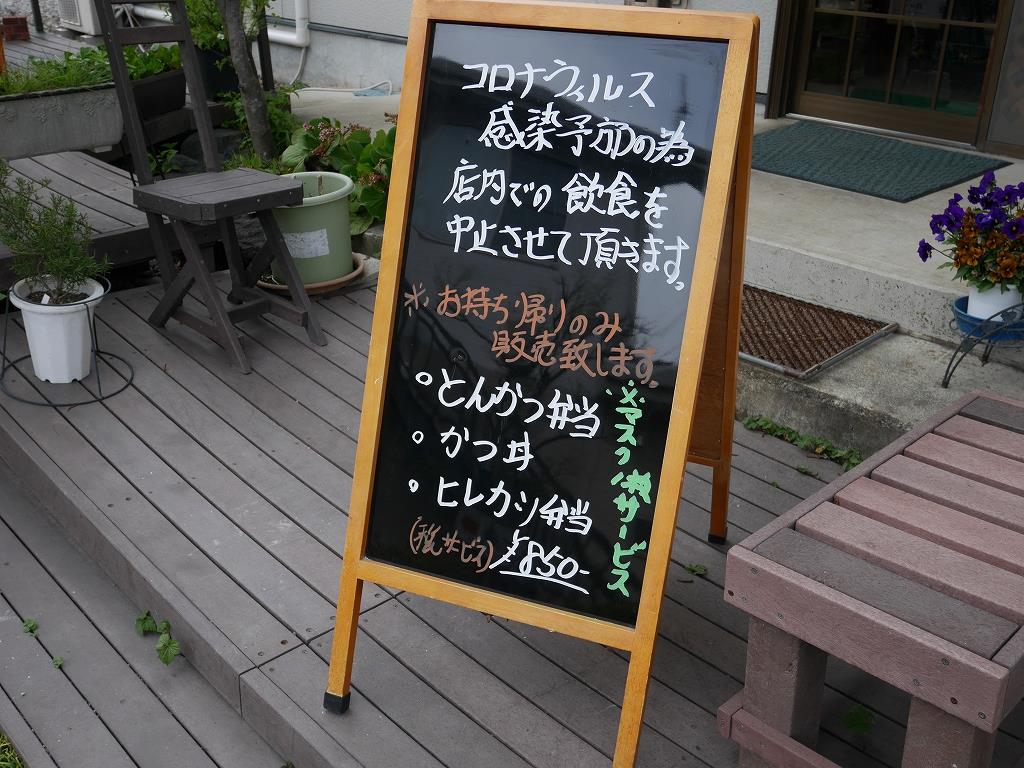 コロナウィルス
感染予防の為
店内での飲食を
中止させて頂きます。
※お持ち帰りのみ
販売致します。
○とんかつ弁当
○かつ丼
○ヒレカツ弁当
(税サービス)¥850-
※マスク1枚サービス